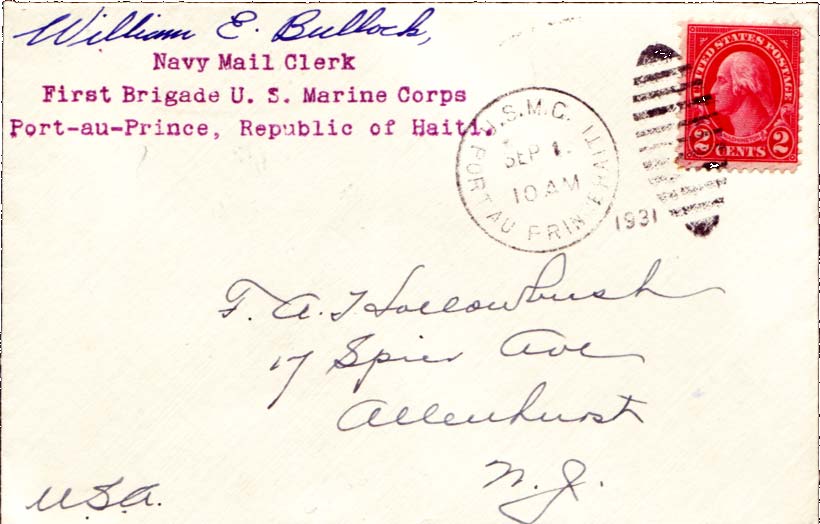 William E. Bullock,
Navy Mail Clerk
First Brigade U. S. Marine Corps
Port-au-Prince, Republic of Haiti.
U.S.M.C.
SEP 1.
10 AM
PORT AU PRINCE HAITI
1931
UNITED STATES POSTAGE
2 CENTS 2
F. A. Hollowbush
17 Spier Ave
Allenhurst
N. J.
U.S.A.